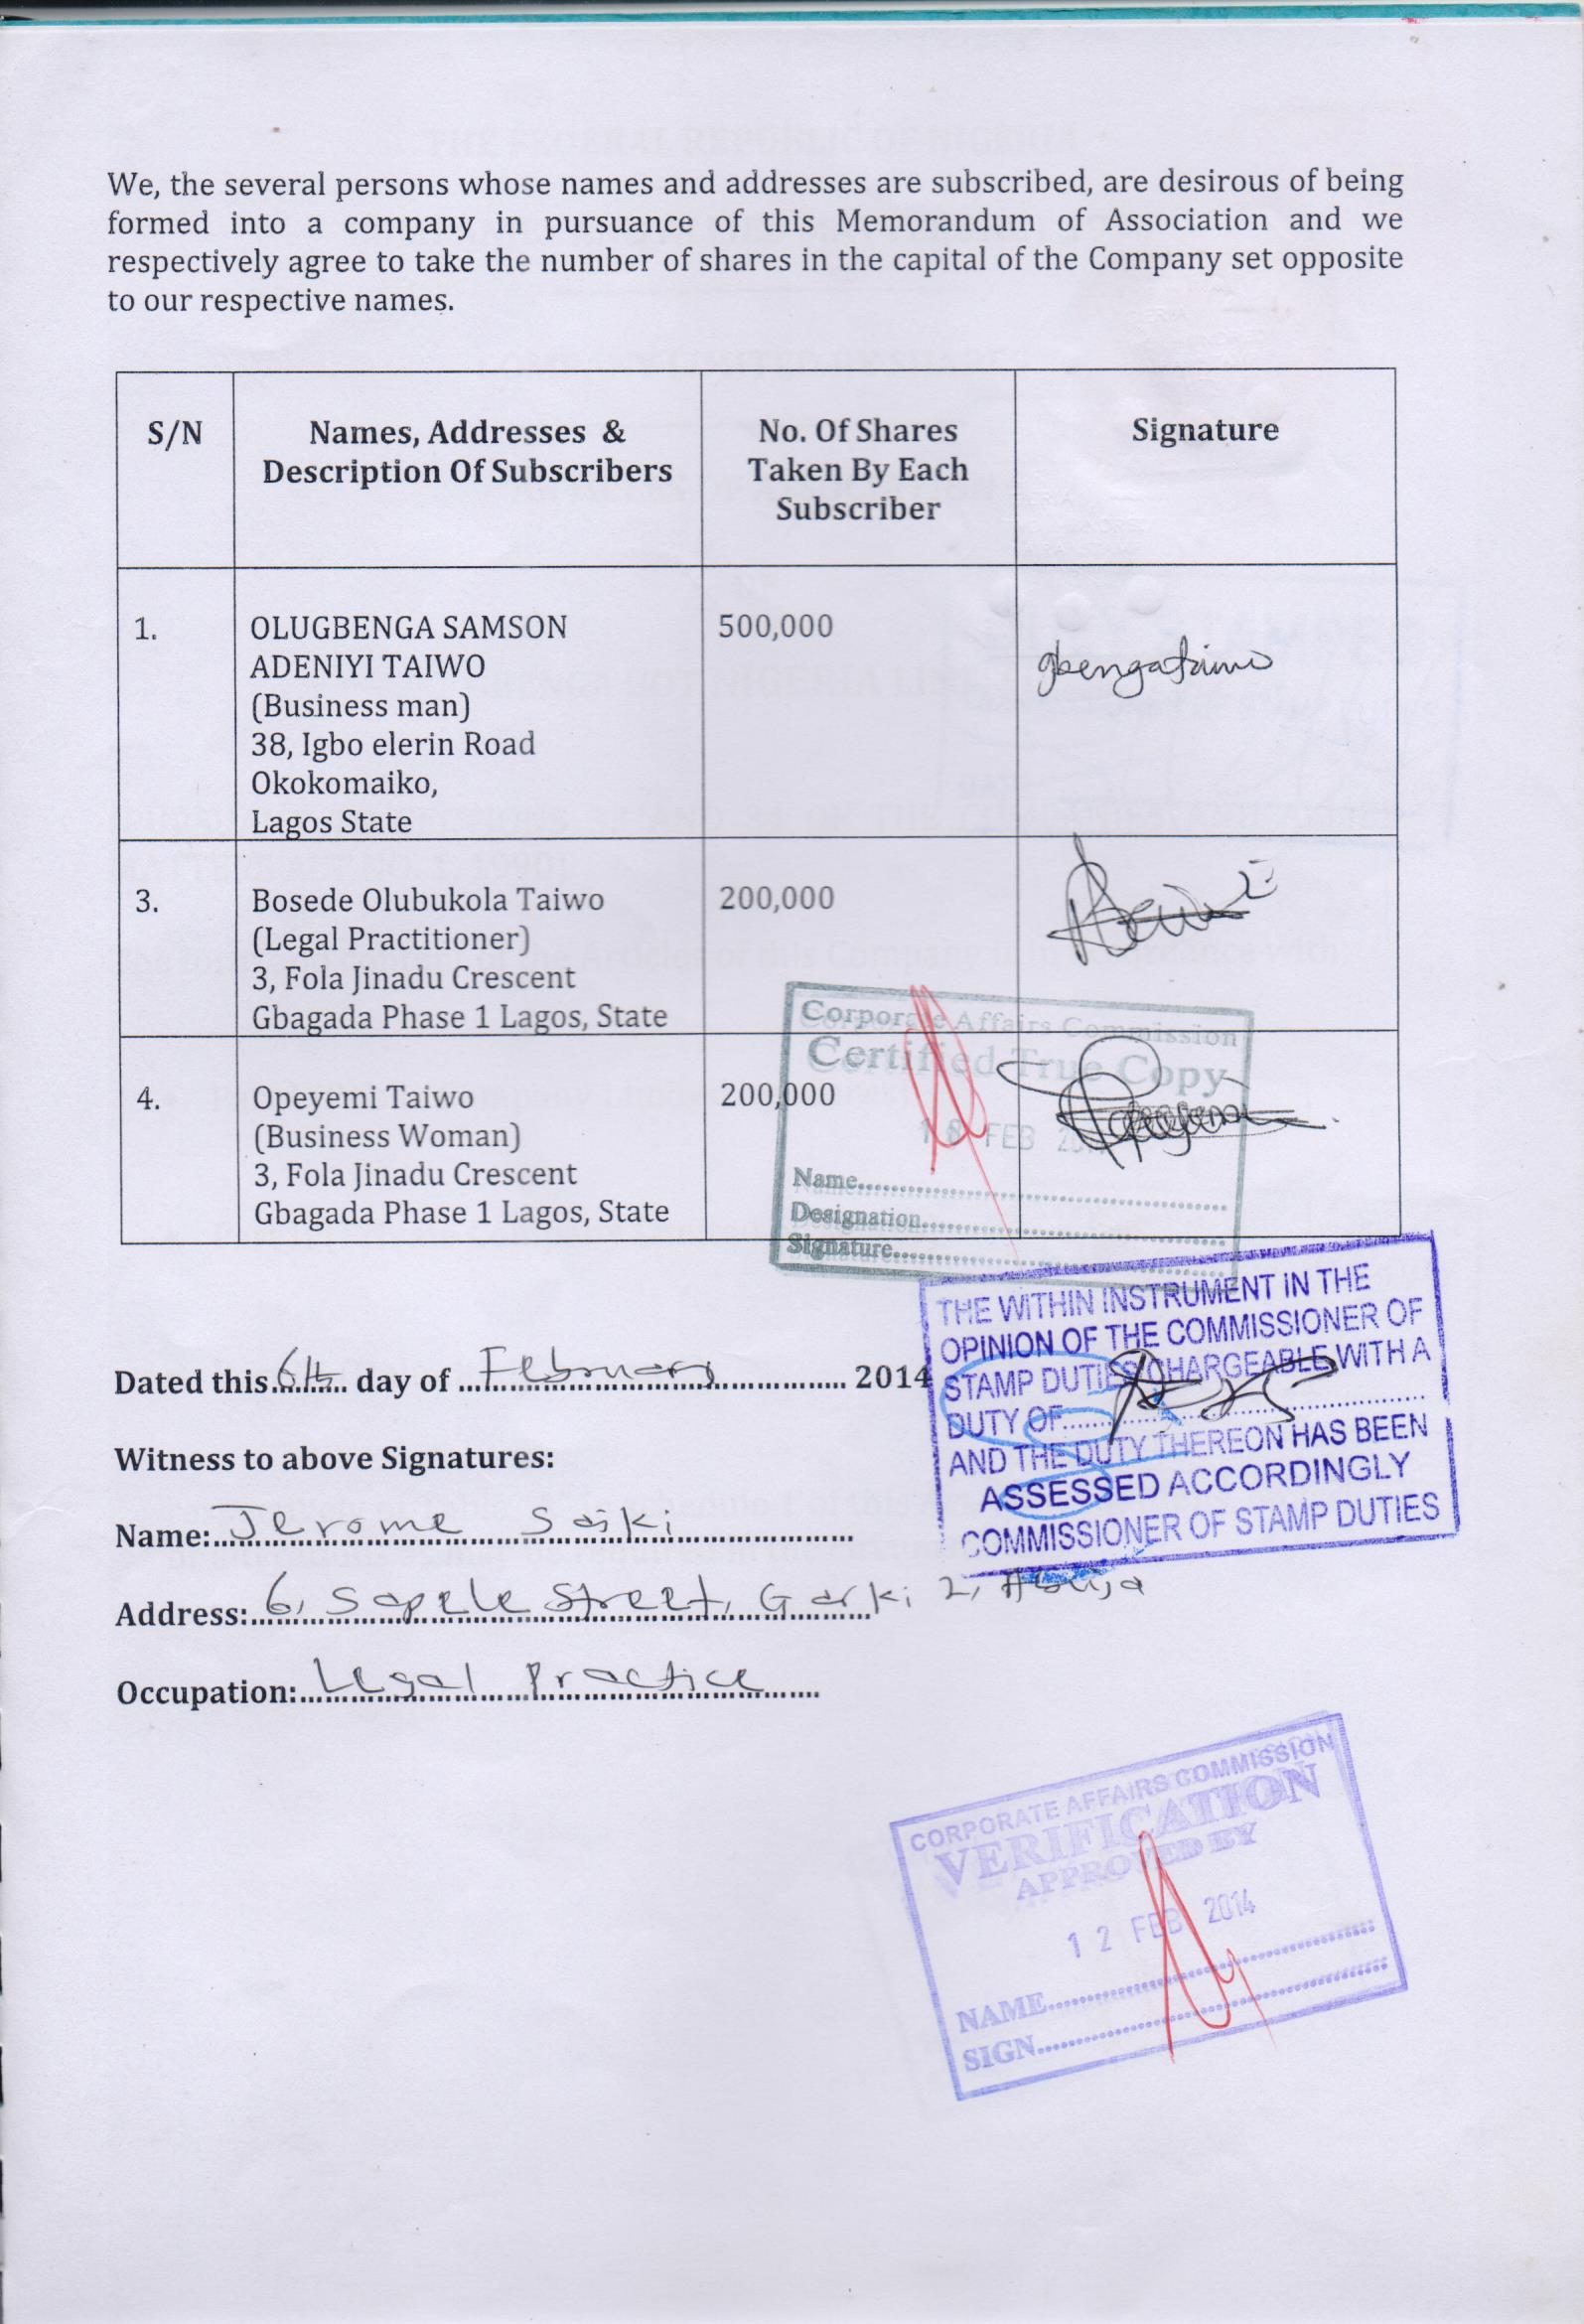 We, the several persons whose names and addresses are subscribed, are desirous of being
formed into a company in pursuance of this Memorandum of Association and we
respectively agree to take the number of shares in the capital of the Company set opposite
to our respective names.
S/N
Names, Addresses &
Description Of Subscribers
No. Of Shares
Taken By Each
Subscriber
Signature
1.
OLUGBENGA SAMSON
ADENIYI TAIWO
(Business man)
38, Igbo elerin Road
Okokomaiko,
Lagos State
500,000
3.
Bosede Olubukola Taiwo
(Legal Practitioner)
3, Fola Jinadu Crescent
Gbagada Phase 1 Lagos, State
200,000
4.
Opeyemi Taiwo
(Business Woman)
3, Fola Jinadu Crescent
Gbagada Phase 1 Lagos, State
200,000
Corporate Affairs Commission
Certified True Copy
FEB
Name
Designation
Signature
THE WITHIN INSTRUMENT IN THE
OPINION OF THE COMMISSIONER OF
STAMP DUTIES CHARGEABLE WITH A
DUTY OF
AND THE DUTY THEREON HAS BEEN
ASSESSED ACCORDINGLY
COMMISSIONER OF STAMP DUTIES
Dated this 6th day of February 2014
Witness to above Signatures:
Name: Jerome Saiki
Address: 6, Sapele Street, Garki 2, Abuja
Occupation: Legal Practice
CORPORATE AFFAIRS COMMISSION
VERIFICATION
APPROVED BY
12 FEB 2014
NAME
SIGN